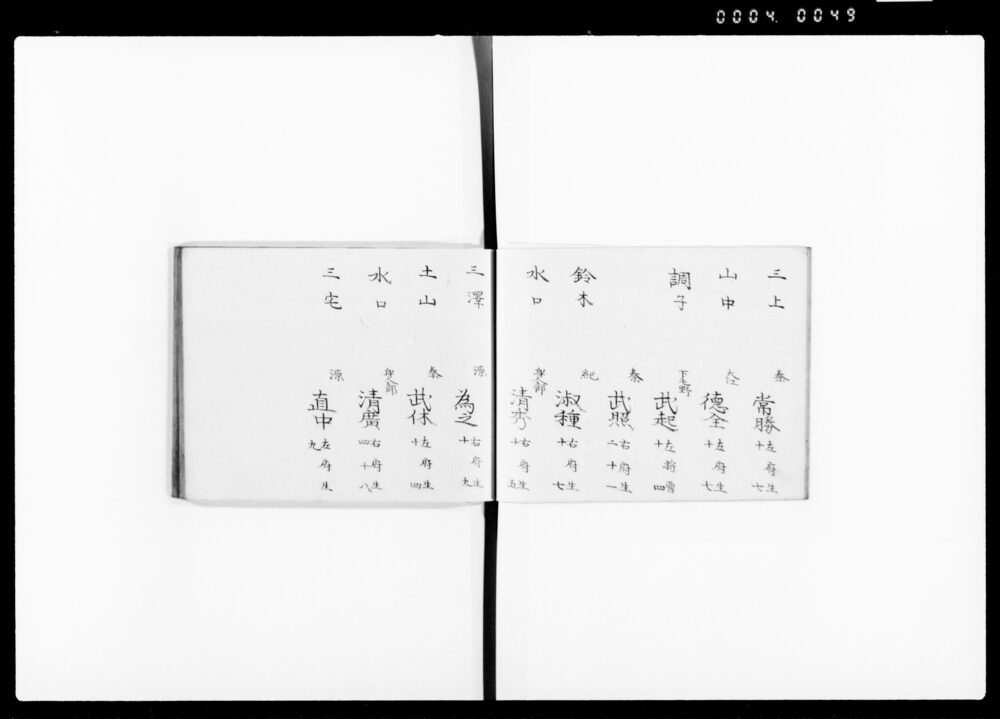 0004. 0049
三上 秦 常勝 左府生 十七
山中 大江 德全 左府生 十七
調子 下毛野 武起 左將曹 十四
秦 武照 右府生 二十一
鈴木 紀 淑種 右府生 十七
水口 清秀 右府生 十五
三澤 源 為之 右府生 十九
土山 秦 武休 左府生 十四
水口 清廣 右府生 四十八
三宅 源 直中 左府生 九